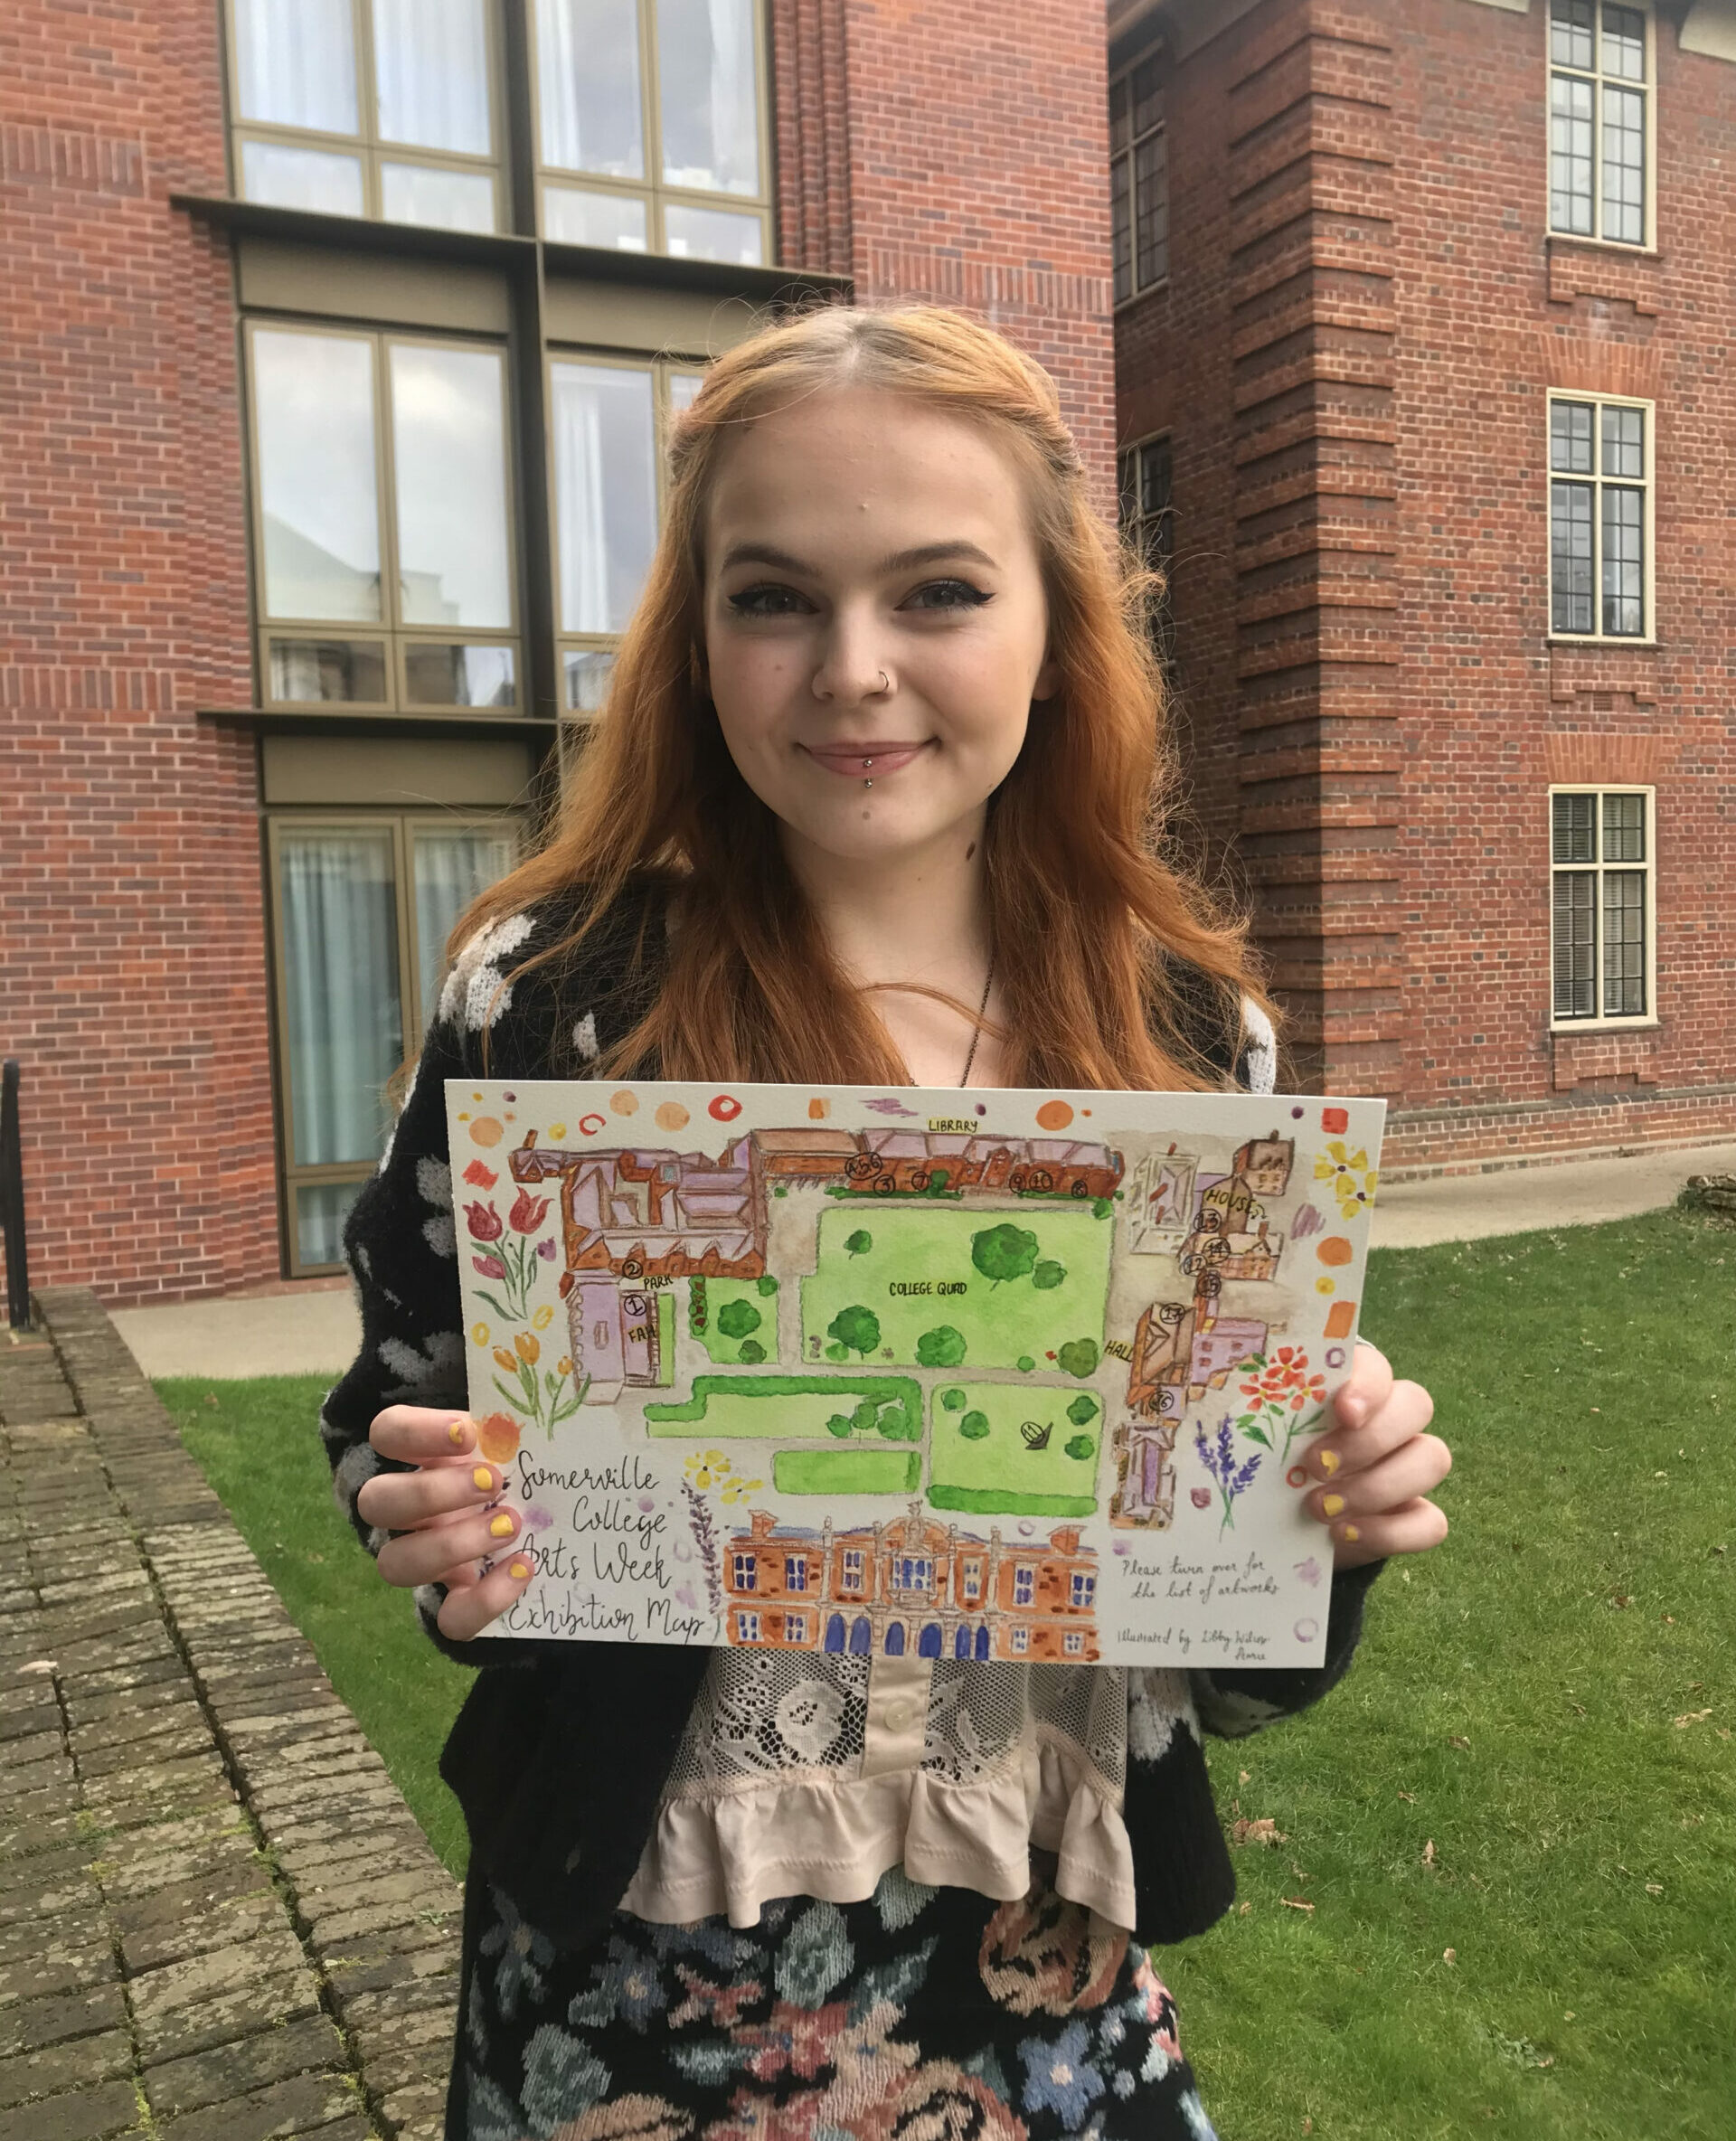 LIBRARY
4,5,6
3
7
9
10
8
HOUSE
13
14
12
15
2
PARK
1
FAH
COLLEGE QUAD
17
HALL
16
11
Somerville
College
Arts Week
Exhibition Map
Please turn over for
the list of artworks
Illustrated by Libby